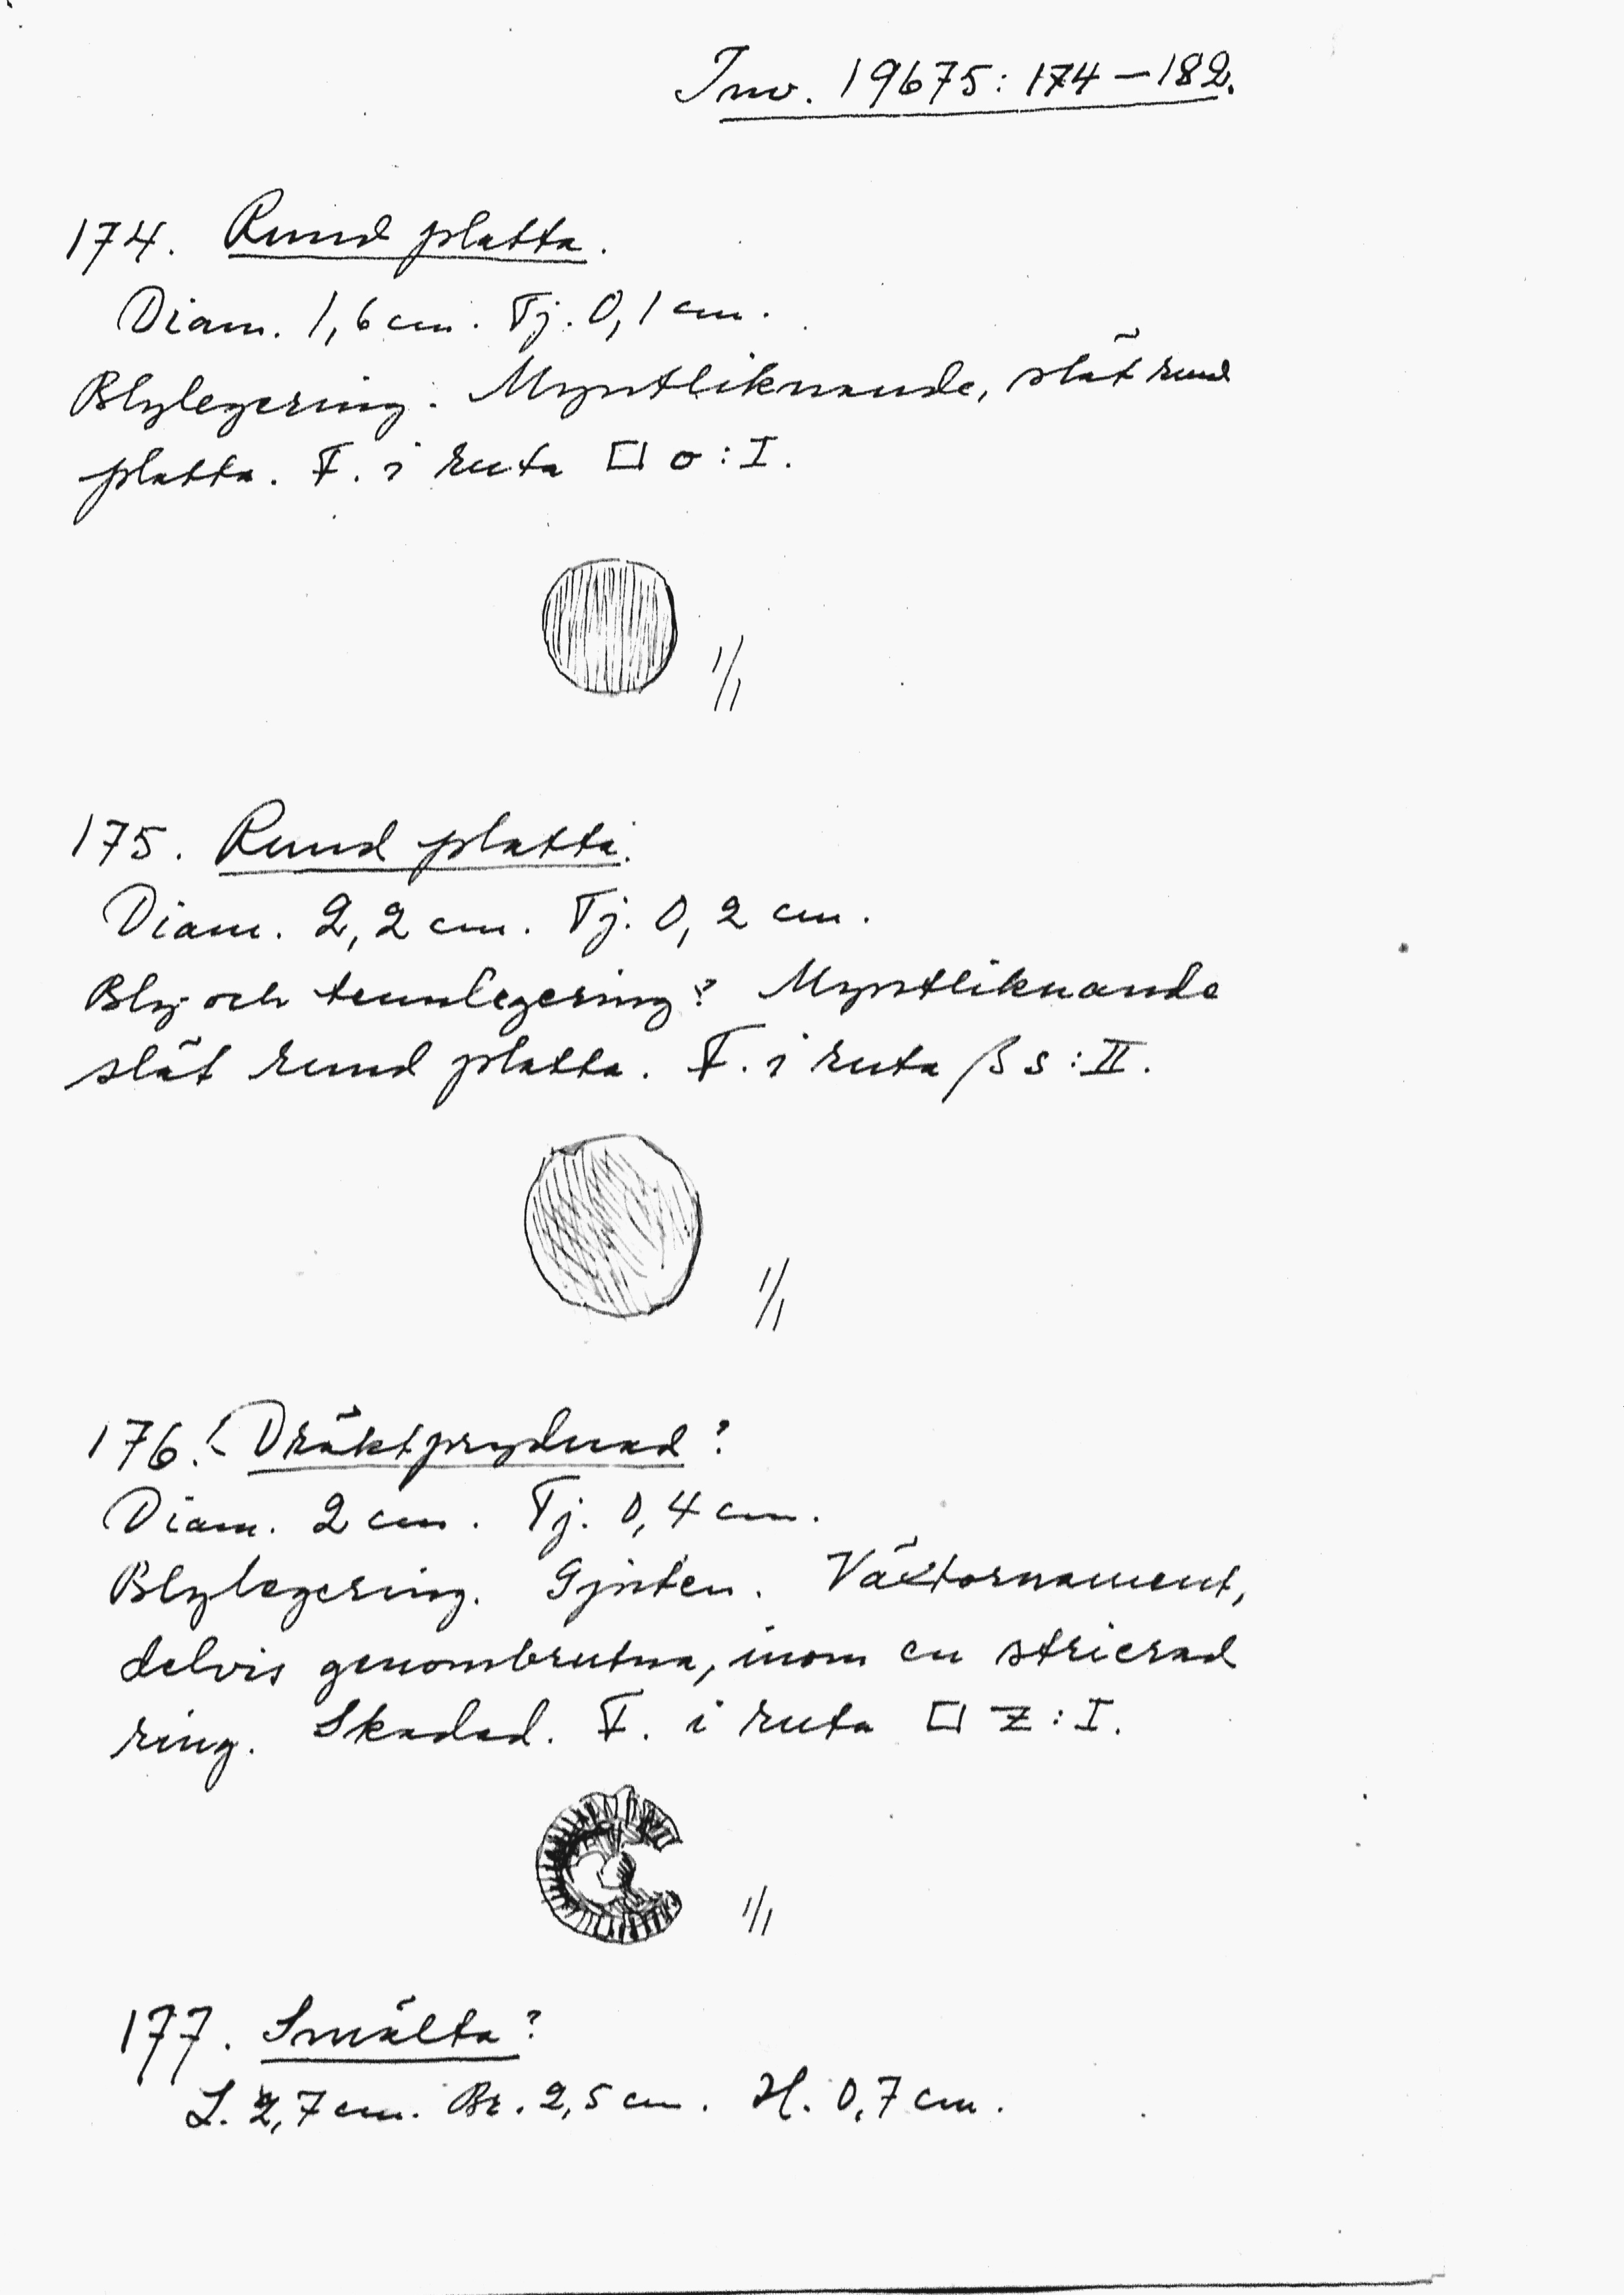 Inv. 19675: 174–182.
174. Rund platta.
Diam. 1,6 cm. Tj. 0,1 cm.
Blylegering. Myntliknande, slät rund
platta. F. i ruta □ o : I.
1/1
175. Rund platta.
Diam. 2,2 cm. Tj. 0,2 cm.
Bly- och tennlegering? Myntliknande
slät rund platta. F. i ruta β s : II.
1/1
176. Dräktprydnad?
Diam. 2 cm. Tj. 0,4 cm.
Blylegering. Gjuten. Växtornament,
delvis genombrutna, inom en strierad
ring. Skadad. F. i ruta □ z : I.
1/1
177. Smälta?
L. 2,7 cm. Br. 2,5 cm. H. 0,7 cm.